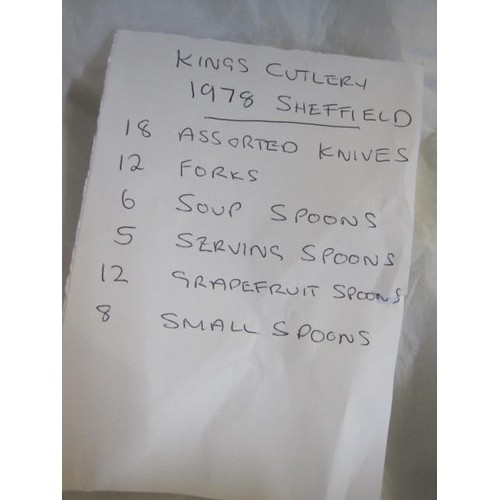 KINGS CUTLERY
1978 SHEFFIELD
18 ASSORTED KNIVES
12 FORKS
6 SOUP SPOONS
5 SERVING SPOONS
12 GRAPEFRUIT SPOONS
8 SMALL SPOONS